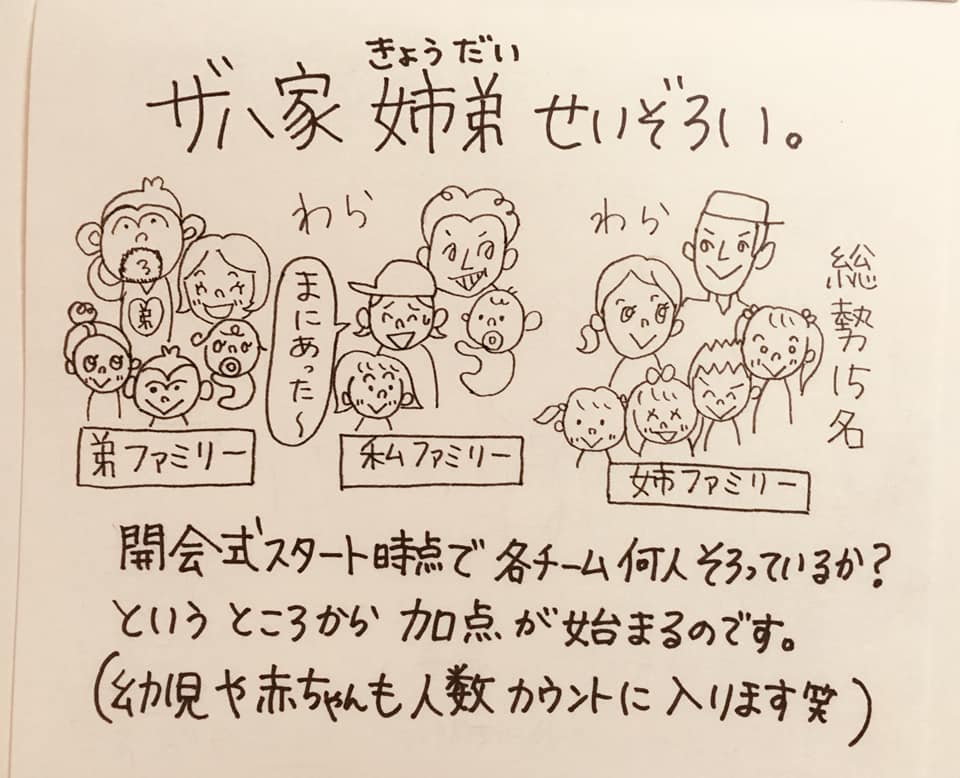 きょうだい
ザハ家 姉弟 せいぞろい。
わら
わら
まにあった～
弟
総勢15名
弟ファミリー
私ファミリー
姉ファミリー
開会式スタート時点で 各チーム何人そろっているか?
というところから 加点が始まるのです。
(幼児や赤ちゃんも人数カウントに入ります笑)